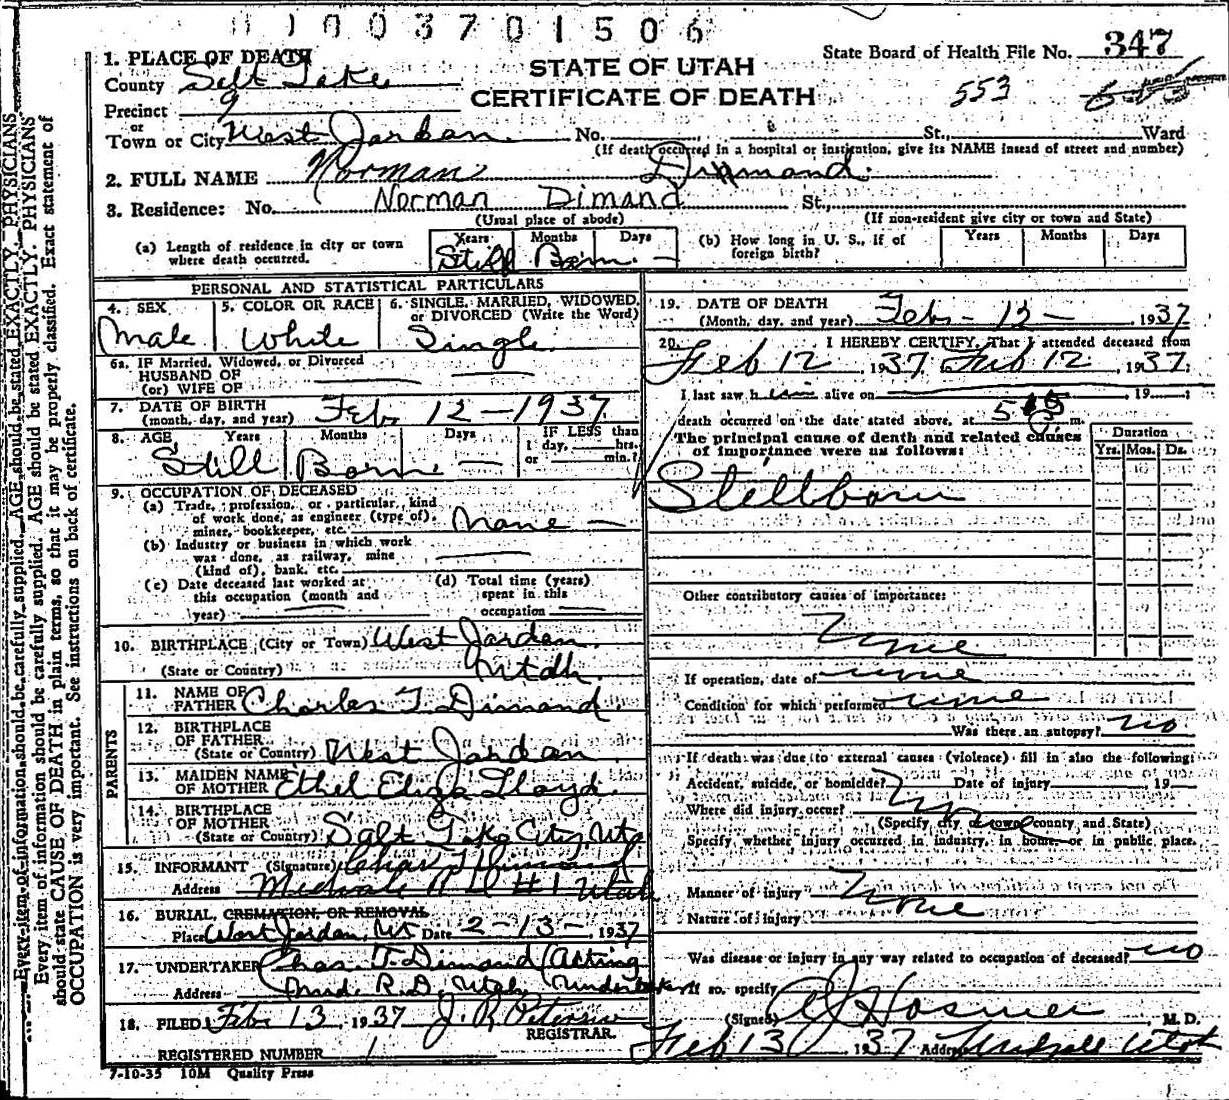 1003701506
1. PLACE OF DEATH
State Board of Health File No. 347
County Salt Lake
STATE OF UTAH
553
Precinct 9
CERTIFICATE OF DEATH
or
Town or City West Jordan No. St., Ward
(If death occurred in a hospital or institution, give its NAME instead of street and number)
2. FULL NAME Norman Dimand
3. Residence: No. Norman Dimand St.,
(Usual place of abode) (If non-resident give city or town and State)
(a) Length of residence in city or town where death occurred. Years Months Days Still Born —
(b) How long in U. S., if of foreign birth? Years Months Days
PERSONAL AND STATISTICAL PARTICULARS
4. SEX Male
5. COLOR OR RACE White
6. SINGLE, MARRIED, WIDOWED, or DIVORCED (Write the Word) Single
6a. IF Married, Widowed, or Divorced
HUSBAND OF
(or) WIFE OF
7. DATE OF BIRTH
(month, day, and year) Feb 12 - 1937
8. AGE Years Months Days IF LESS than
1 day, hrs.
or min.?
Still Born —
9. OCCUPATION OF DECEASED
(a) Trade, profession, or particular kind
of work done, as engineer (type of),
miner, bookkeeper, etc. None —
(b) Industry or business in which work
was done, as railway, mine
(kind of), bank, etc.
(c) Date deceased last worked at
this occupation (month and
year)
(d) Total time (years)
spent in this
occupation
10. BIRTHPLACE (City or Town) West Jordan
(State or Country) Utah
PARENTS
11. NAME OF
FATHER Charles T. Dimand
12. BIRTHPLACE
OF FATHER
(State or Country) West Jordan
13. MAIDEN NAME
OF MOTHER Ethel Eliza Lloyd
14. BIRTHPLACE
OF MOTHER
(State or Country) Salt Lake City, Uta
15. INFORMANT (Signature) Chas T Dimand
Address Midvale R D #1 Utah
16. BURIAL, CREMATION, OR REMOVAL
Place West Jordan, Ut Date 2-13-, 1937
17. UNDERTAKER Chas. T. Dimand (Acting
Address Mid. R.D. Utah Undertaker
18. FILED Feb 13, 1937 J. R. Peterson
REGISTRAR.
REGISTERED NUMBER 1
7-10-35 10M Quality Press
19. DATE OF DEATH
(Month, day, and year) Feb - 12 -, 1937
20. I HEREBY CERTIFY, That I attended deceased from
Feb 12 1937, Feb 12, 1937;
I last saw him alive on , 19 ;
death occurred on the date stated above, at 5 m.
The principal cause of death and related causes
of importance were as follows:
Duration
Yrs. Mos. Ds.
Stillborn
Other contributory causes of importance:
None
If operation, date of none
Condition for which performed none
Was there an autopsy? no
If death was due to external causes (violence) fill in also the following:
Accident, suicide, or homicide? Date of injury , 19
Where did injury occur? None
(Specify city or town, county and State)
Specify whether injury occurred in industry, in home, or in public place.
Manner of injury None
Nature of injury
Was disease or injury in any way related to occupation of deceased? no
If so, specify
(Signed) A J Hosmer M. D.
Feb 13, 1937 Address Midvale Utah
Every item of information should be carefully supplied. AGE should be stated EXACTLY. PHYSICIANS
Every item of information should be carefully supplied. AGE should be stated EXACTLY. PHYSICIANS
should state CAUSE OF DEATH in plain terms, so that it may be properly classified. Exact statement of
OCCUPATION is very important. See instructions on back of certificate.